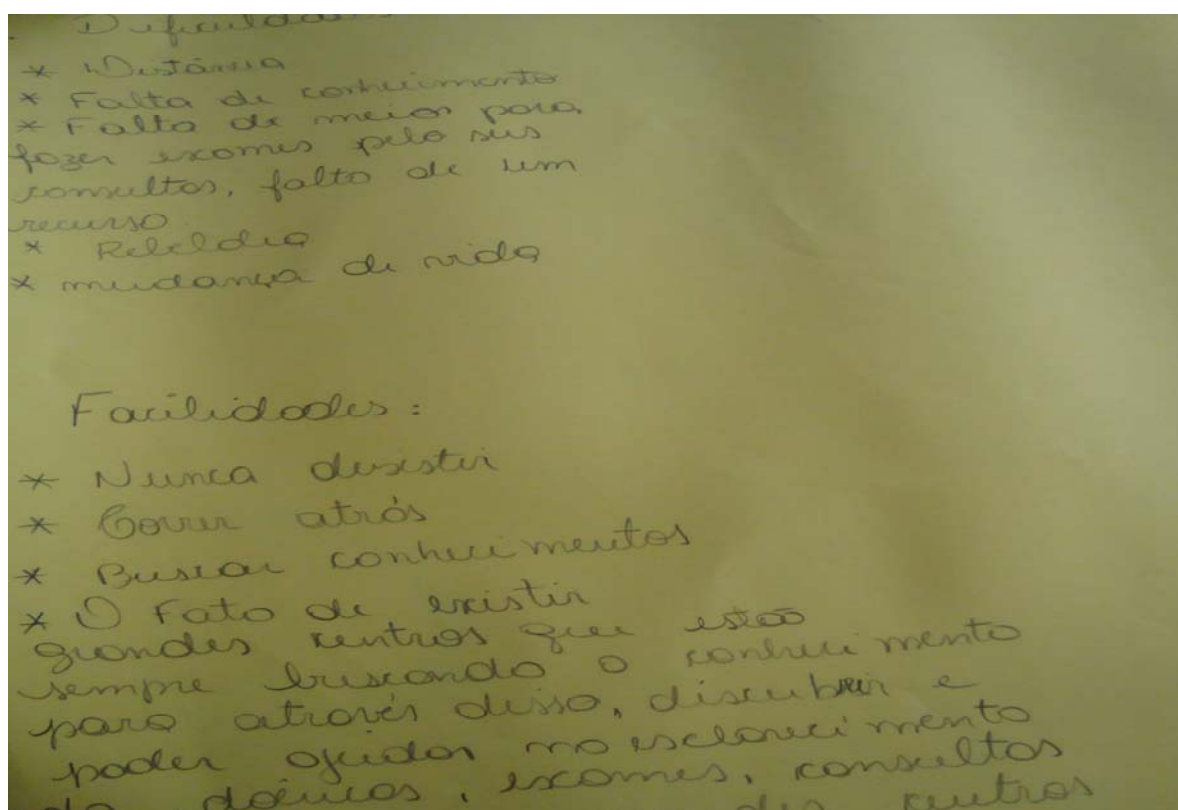 Dificuldades
* Distância
* Falta de conhecimento
* Falta de meios para
fazer exames pelo sus
consultas, falta de um
recurso
* Rebeldia
* mudança de vida
Facilidades:
* Nunca desistir
* Correr atrás
* Buscar conhecimentos
* O Fato de existir
grandes centros que estão
sempre buscando o conhecimento
para através disso, discubrir e
poder ajudar no esclarecimento
exames, consultas
centros